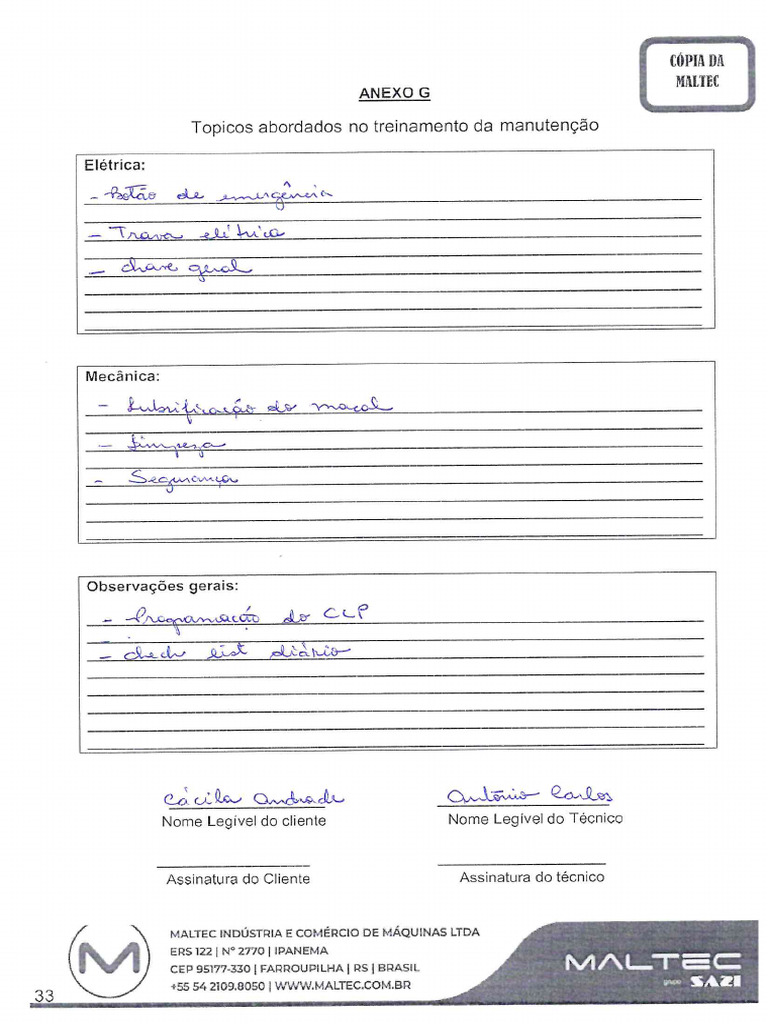 CÓPIA DA
MALTEC
ANEXO G
Topicos abordados no treinamento da manutenção
Elétrica:
- Botão de emergência
- Trava elétrica
- chave geral
Mecânica:
- Lubrificação do macal
- Limpeza
- Segurança
Observações gerais:
- Programação do CLP
- check list diário
Cácila Andrade
Antônio Carlos
Nome Legível do cliente
Nome Legível do Técnico
Assinatura do Cliente
Assinatura do técnico
M
MALTEC INDÚSTRIA E COMÉRCIO DE MÁQUINAS LTDA
ERS 122 | Nº 2770 | IPANEMA
CEP 95177-330 | FARROUPILHA | RS | BRASIL
+55 54 2109.8050 | WWW.MALTEC.COM.BR
MALTEC
grupo SAZI
33